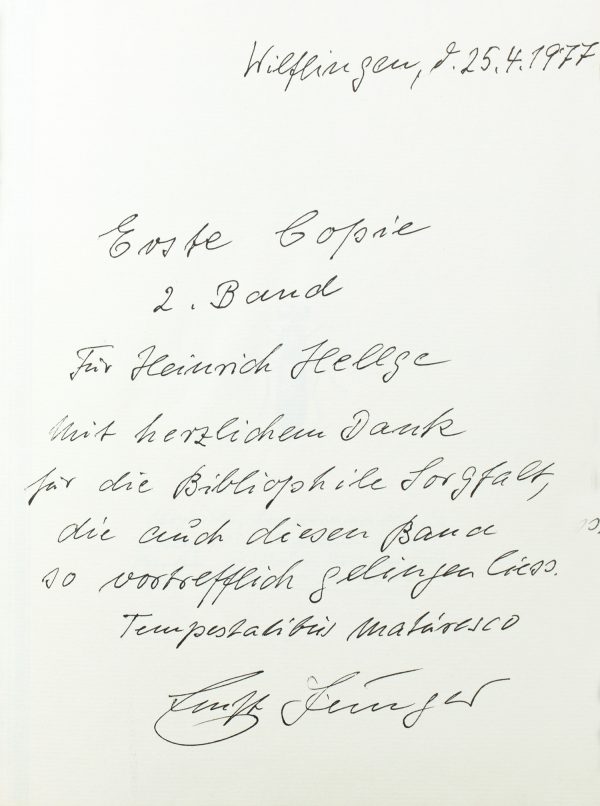 Wilflingen, d. 25.4.1977
Erste Copie
2. Band
Für Heinrich Hellge
Mit herzlichem Dank
für die Bibliophile Sorgfalt,
die auch diesen Band
so vortrefflich gelingen liess.
Tempestatibus maturesco
Ernst Jünger